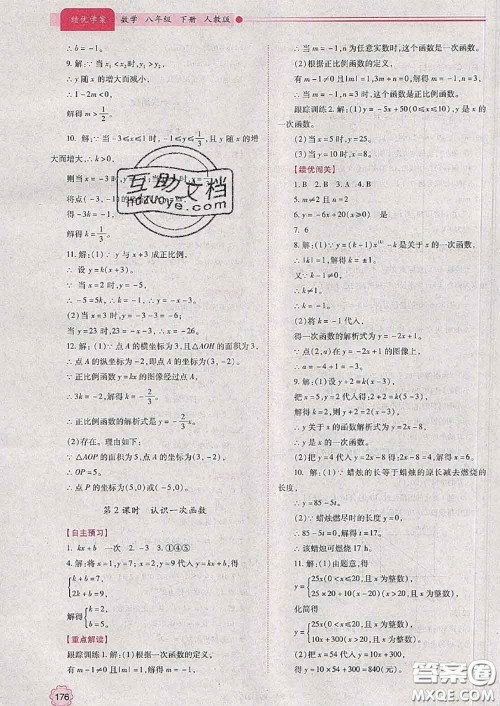 绩优学案 数学 八年级 下册 人教版
∴k=-1.
9. 解:∵当x₁<x₂时,y₁>y₂,
∴y随x的增大而减小,
∴1-2m<0.
解得m>1/2.
10. 解:∵当-3≤x≤1时,-1≤y≤1/3,且y随x的增
大而增大,∴k>0.
则当x=-3时,y=-1,
当x=1时,y=1/3.
得-3k=-1.
解得k=1/3.
11. 解:(1)∵y与x+3成正比例,
∴设y=k(x+3).
∵当x=2时,y=-5,
∴-5=5k,∴k=-1.
(2)当x=3时,y=-3-3=-6,
当y=23时,23=-x-3,∴x=-26.
12. 解:(1)∵点A的横坐标为3,且△AOH的面积为3,
∴点A的纵坐标为-2,点A的坐标为(3,-2).
∵正比例函数y=kx的图像经过点A,
∴3k=-2,解得k=-2/3.
∴正比例函数的解析式是y=-2/3x.
(2)存在。理由如下:
∵△AOP的面积为5,点A的坐标为(3,-2),
∴OP=5.
∴点P的坐标为(5,0)或(-5,0).
第2课时 认识一次函数
【自主预习】
1. kx+b 一次 2. -3 3. ①④⑤
4. 解:将x=1,y=5;x=2,y=9代入y=kx+b,得
{k+b=5,
2k+b=9,
解得{k=4,
【重点解读】
跟踪训练1. 解:(1)根据一次函数的定义,
有m-1≠0且|m|=1,解得m=-1.
176
∴当m=-1,n为任意实数时,这个函数是一次函数.
(2)根据正比例函数的定义,
有m-1≠0且|m|=1,n=0,解得m=-1,n=0.
∴当m=-1,n=0时,这个函数是正比例函数.
跟踪训练2. 解:(1)y=-5x+50(0≤x≤10),y是x的
一次函数.
(2)当x=5时,y=25.
(3)当y=10时,x=8.
【绩优闯关】
1. B 2. B 3. A 4. B
5. m≠2 n=2
6. y=-6x+20(x≥0) 是
7. 6
8. 解:(1)∵y=(k-1)x|k|-k是关于x的一次函数,
∴|k|=1,解得k=±1.
又∵k-1≠0,
∴k≠1.
∴k=-1.
(2)将k=-1代入,
得一次函数的解析式为y=-2x+1.
∵点(2,a)在一次函数y=-2x+1的图像上,
∴a=-4+1=-3.
9. 解:(1)设y+2=k(x-3),
把x=5,y=2代入得2k=4,解得k=2,
∴y+2=2(x-3),
∴y与x的函数关系式为y=2x-8.
(2)把y=4代入y=2x-8得2x-8=4,解得x=6.
10. 解:(1)∵蜡烛的长等于蜡烛的原长减去燃烧的
长度,
∴y=85-5t.
(2)∵蜡烛燃尽时的长度为0,
∴85-5t=0,解得t=17,
∴该蜡烛可燃烧17 h.
11. 解:(1)由题意,得
y={25x(0<x≤20,且x为整数),
25×20+10(x-20)(x>20,且x为整数).
化简得
y={25x(0<x≤20,且x为整数),
10x+300(x>20,且x为整数).
(2)把x=54代入y=10x+300,
得y=10×54+300=840(元).
互助文档
hdzuoye.com
答案圈
MXQE.COM